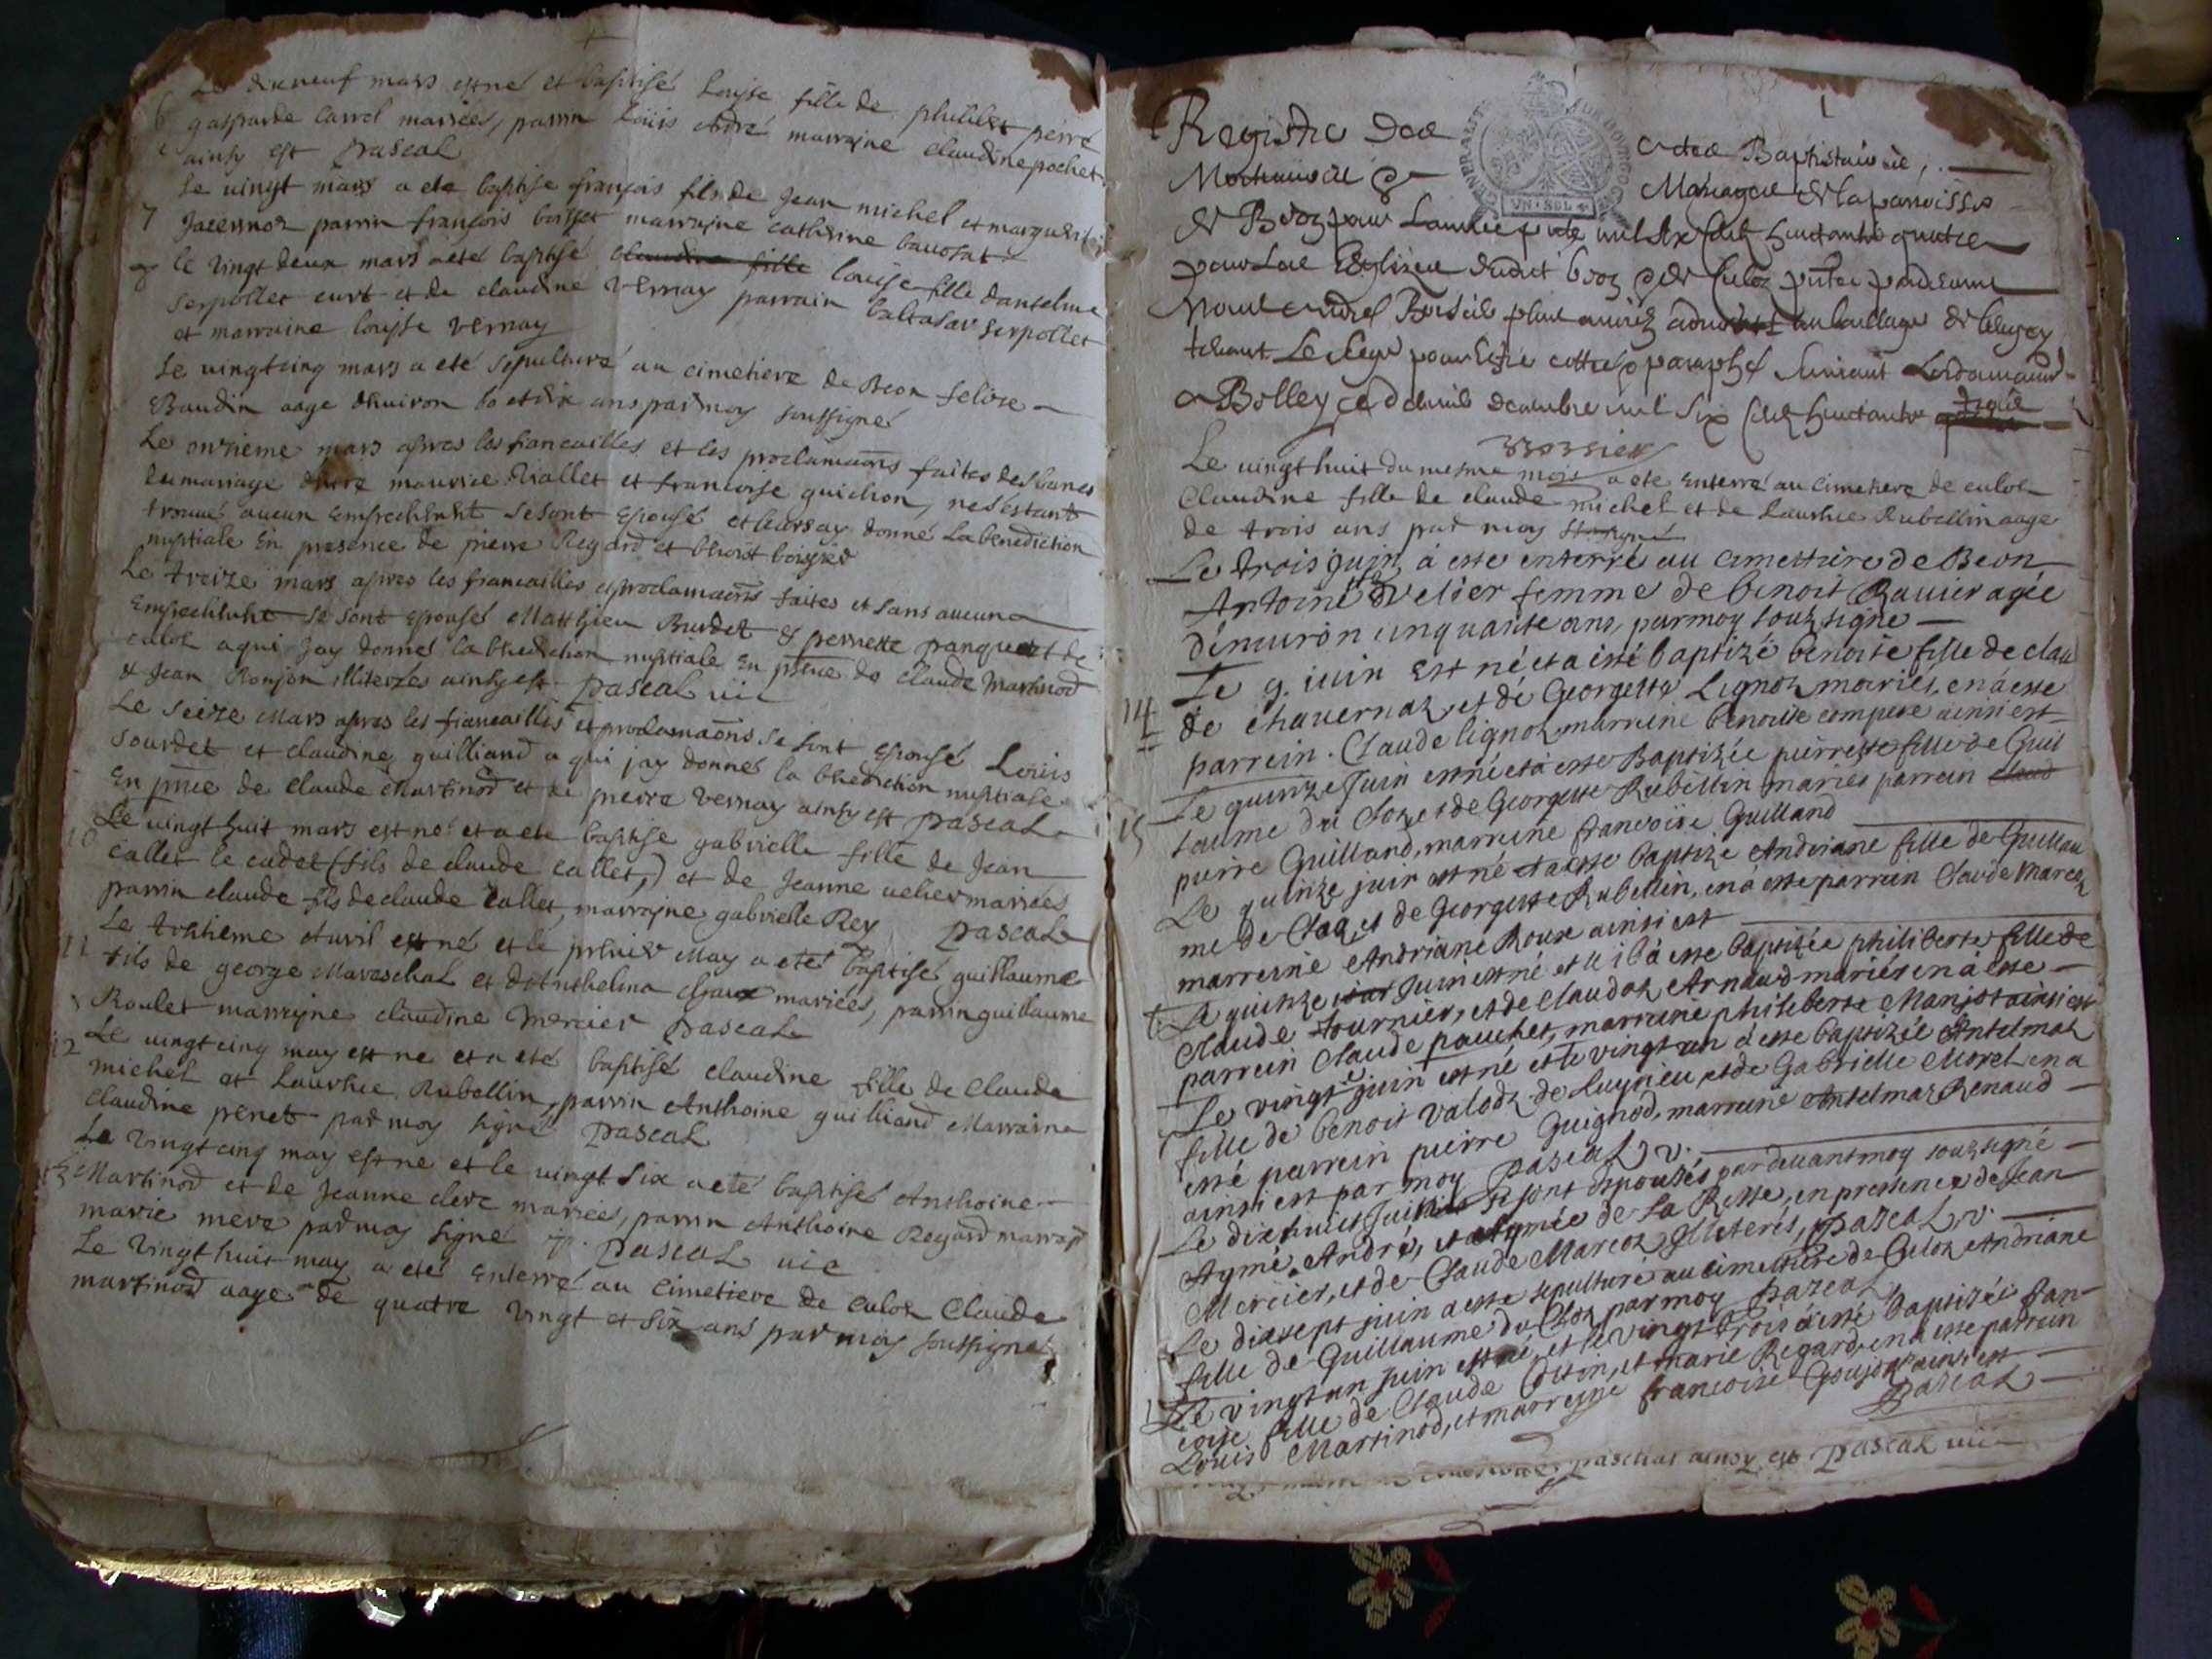 Le dixneuf mars est né et baptisé Louyse fille de philibert peirre
6 gasparde Carrel mariées, parrin Loüis André marrajne claudine pochet
ainsy est Pascal
7 Le uingt mars a ete baptise françois fils de Jean michel et marguerite
Jacennoz parrin françois boisset marrajne catherine bauosat
8 le vingt deux mars a eté baptisé claudine fille louise fille dantelme
Serpollet curt et de claudine Vernay parrain baltasar serpollet
et marraine louisse vernay
Le uingtcinq mars a eté sepulturé au cimetiere de Beon felise
Baudin aage denuiron et dix ans par moy soussigné
Le onzieme mars apres les fiancailles et les proclamaõns faites des bancs
du mariage maurice Viallet et francoise guichon, ne sestant
trouué aucun Empeschement se sont Epousé et leurs ay donné La benediction
nuptiale En presence de pierre Regard et benoist boisset
Le treize mars apres les fiancailles et proclamaõns faites et sans aucun
Empeschement se sont Epousés Matthieu Burdet & pernette panquet de
culoz aqui Jay donnés la benediction nuptiale En pñce de claude Martinod
& Jean Ronjon illiterées ainsy est Pascal vic
Le Seize Mars apres les fiancailles et proclamaõns se sont Epousé Loüis
Sourdet et claudine guilliand a qui jay donnés la benediction nuptiale
En pñce de claude Martinod et de pierre Vernay ainsy est Pascal
10 Le uingt huit mars est né et a ete baptise gabrielle fille de Jean
Callet le cadet (fils de claude callet,) et de Jeanne uelier mariées
parrin claude fils de claude Callet, marrajne gabrielle Rey Pascal
11 Le trentieme Auril est né et le premier May a eté baptisé guillaume
fils de george Mareschal et danthelma chaux mariées, parrin guillaume
Roulet marrajne claudine mercier Pascal
12 Le uingtcinq may est ne et a eté baptisé claudine fille de Claude
michel et Laurence Rubellin, parrin Anthoine guilliand Marraine
Claudine penet par moy signé Pascal
13 Le Vingtcinq may est ne et le uingt Six a eté baptisé Anthoine
Martinod et de Jeanne clerc mariées, parrin Anthoine Regard marrajne
marie mere par moy signé Pascal vic
Le Vingthuit may a eté Enterré au Cimetiere de culoz Claude
martinod aage de quatre Vingt et six ans par moy soussigné
1
Registre des Actes Baptistaires,
Mortuaires & Mariages de la paroisse
de Beoz pour Lannée mil six cents huictante quatre
pour Les Eglises dudict beoz & de Culoz
plus ancien aduocat au baillage de beugey
tenant Le siege pour Estre cotté & paraphé suiuant Lordonnance
a Belley ce decembre mil six cents huictante trois
UN · SOL
Le uingt huit du mesme mois a ete Enterré au Cimetiere de culoz
Claudine fille de claude michel et de Laurence Rubellin aage
de trois ans par moy soussigné
Le trois juin, à esté enterré au cimettiere de Beon
Antoine Velier femme de benoit Rauier agée
d'enuiron cinquante ans, par moy soubsigné
14 Le 9. iuin est né et a esté baptizé benoite fille de clau
de chauernaz et de Georgette Lignoz mariés, en à esté
parrein. Claude lignoz marreine benoite compere ainsi est
15 Le quinze Juin est né et à esté Baptizée pierrette fille de Guil
laume du Cloz et de Georgette Rubellin mariés parrein Claud
pierre Guilland, marreine francoise Guilland
Le quinze juin est né et à esté baptize Andriane fille de Guillau
me de Cloz et de Georgette Rubellin, en à esté parrein Claude Marcoz
marreine Andriane Roux ainsi est
Le quinze Juin est né et le à esté baptizée philiberte fille de
Claude tournier, et de Claudoz Arnaud mariés en à esté
parrein Claude pauchet, marreine philiberte Manjot ainsi est
Le vingt juin est né et le vingt un à esté baptizée Antelmaz
fille de benoit Valodz de luyrieu et de Gabrielle Morel en a
esté parrein pierre Guignod, marreine Antelmaz Renaud
ainsi est par moy Pascal v.
Le dixhuict Juin se sont espousés pardeuant moy soubsigné
Aymé André, et Aymée de La Resse, en presence de Jean
Mercier, et de Claude Marcoz Illiterés, Pascal v.
Le dixsept juin a esté sepulturé au cimettiere de Culoz Andriane
fille de Guillaume du Cloz par moy Pascal
Le vingt un juin est né, et le vingt trois à esté baptizée fran-
coise fille de Claude Costin, et marie Regard, en à esté parrein
Louis Martinod, et marreine francoise Goujon ainsi est
Pascal
paschal ainsy est Pascal vic